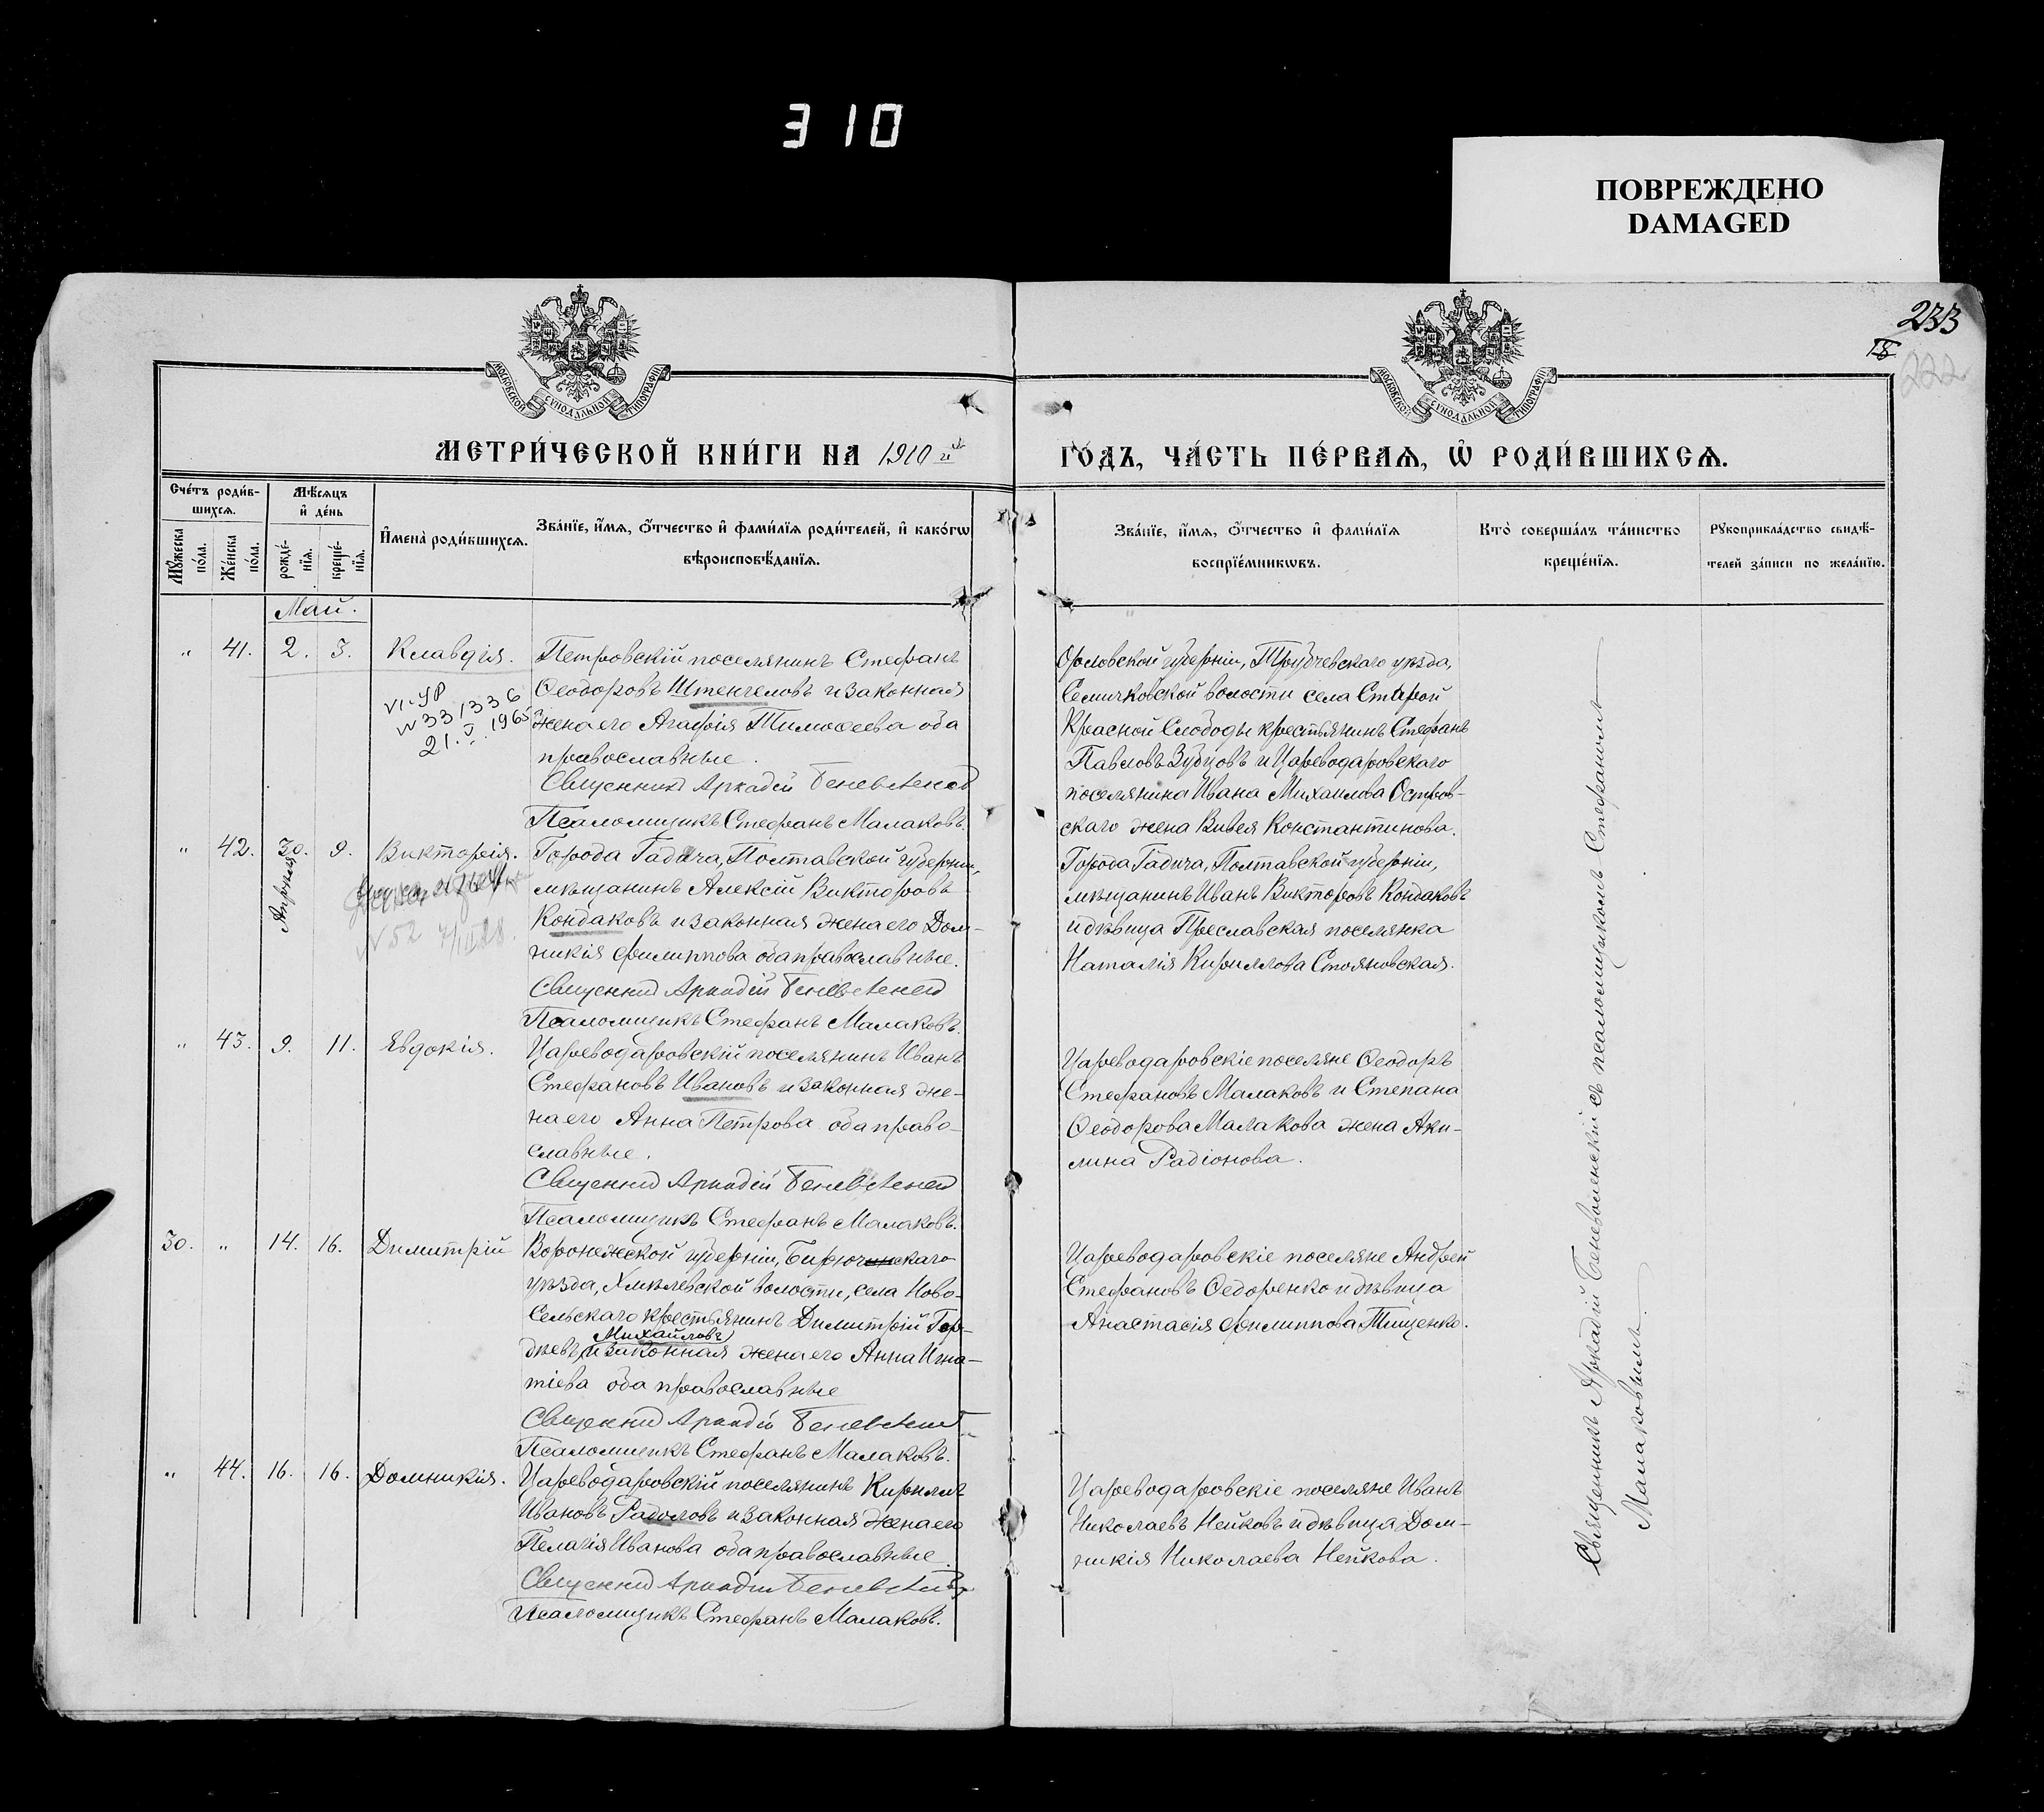 310
ПОВРЕЖДЕНО
DAMAGED
233
18
222
МОСКОВСКОЙ СѴНОДАЛЬНОЙ ТИПОГРАФІИ
МОСКОВСКОЙ СѴНОДАЛЬНОЙ ТИПОГРАФІИ
МЕТРИ́ЧЕСКОЙ КНИ́ГИ НА 1910 й
ГО́ДЪ, ЧА́СТЬ ПЕ́РВАѦ, Ѡ҆ РОДИ́ВШИХСѦ.
Сче́тъ роди́в-
шихсѧ.
Мꙋ́жеска по́ла.
Же́нска по́ла.
Мѣ́сѧцъ
и҆ де́нь
рожде́-
нїѧ.
креще́-
нїѧ.
И҆мена̀ роди́вшихсѧ.
Зва́нїе, и҆́мѧ, ѻ҆́тчество и҆ фами́лїѧ роди́телей, и҆ како́гѡ
вѣроисповѣ́данїѧ.
Зва́нїе, и҆́мѧ, ѻ҆́тчество и҆ фами́лїѧ
воспрїе́мникѡвъ.
Кто̀ соверша́лъ та́инство
креще́нїѧ.
Рꙋкоприкла́дство свидѣ́-
телей за́писи по жела́нїю.
Май.
" 41. 2. 3. Клавдія.
VI-УР
№ 331336
21.V.1965
Петровскій поселянинъ Стефанъ
Ѳеодоровъ Штенгеловъ и законная
жена его Агафія Тимоѳеева оба
православные.
Священникъ Аркадій Беневоленскій
Псаломщикъ Стефанъ Малаковъ.
Орловской губерніи, Трубчевскаго уѣзда,
Семячковской волости села Старой
Красной Слободы крестьянинъ Стефанъ
Павловъ Зубцовъ и Цареводаровскаго
поселянина Ивана Михаилова Остров-
скаго жена Вивея Константинова.
" 42. 30. 9. Викторія.
Апрѣля
№ 52
Города Гадяча, Полтавской губерніи,
мѣщанинъ Алексій Викторовъ
Кондаковъ и законная жена его Дом-
никія Филиппова оба православные.
Священникъ Аркадій Беневоленскій
Псаломщикъ Стефанъ Малаковъ.
Города Гадяча, Полтавской губерніи,
мѣщанинъ Иванъ Викторовъ Кондаковъ
и дѣвица Преславская поселянка
Наталія Кириллова Стояновская.
" 43. 9. 11. Евдокія.
Цареводаровскій поселянинъ Иванъ
Стефановъ Ивановъ и законная же-
на его Анна Петрова оба право-
славные.
Священникъ Аркадій Беневоленскій
Псаломщикъ Стефанъ Малаковъ.
Цареводаровскіе поселяне Ѳеодоръ
Стефановъ Малаковъ и Степана
Ѳеодорова Малакова жена Аки-
лина Радіонова.
30. " 14. 16. Димитрій
Воронежской губерніи, Бирюченскаго
уѣзда, Хмѣлевской волости, села Ново-
Сельскаго крестьянинъ Димитрій Гор-
Михайловъ
дѣевъ и законная жена его Анна Игна-
тіева оба православные
Священникъ Аркадій Беневоленскій
Псаломщикъ Стефанъ Малаковъ.
Цареводаровскіе поселяне Андрей
Стефановъ Ѳедоренко и дѣвица
Анастасія Филиппова Тищенко.
" 44. 16. 16. Домникія.
Цареводаровскій поселянинъ Кириллъ
Ивановъ Радоловъ и законная жена его
Пелагія Иванова оба православные.
Священникъ Аркадій Беневоленскій
Псаломщикъ Стефанъ Малаковъ.
Цареводаровскіе поселяне Иванъ
Николаевъ Нейковъ и дѣвица Дом-
никія Николаева Нейкова.
Священникъ Аркадій Беневоленскій съ псаломщикомъ Стефаномъ
Малаковымъ.